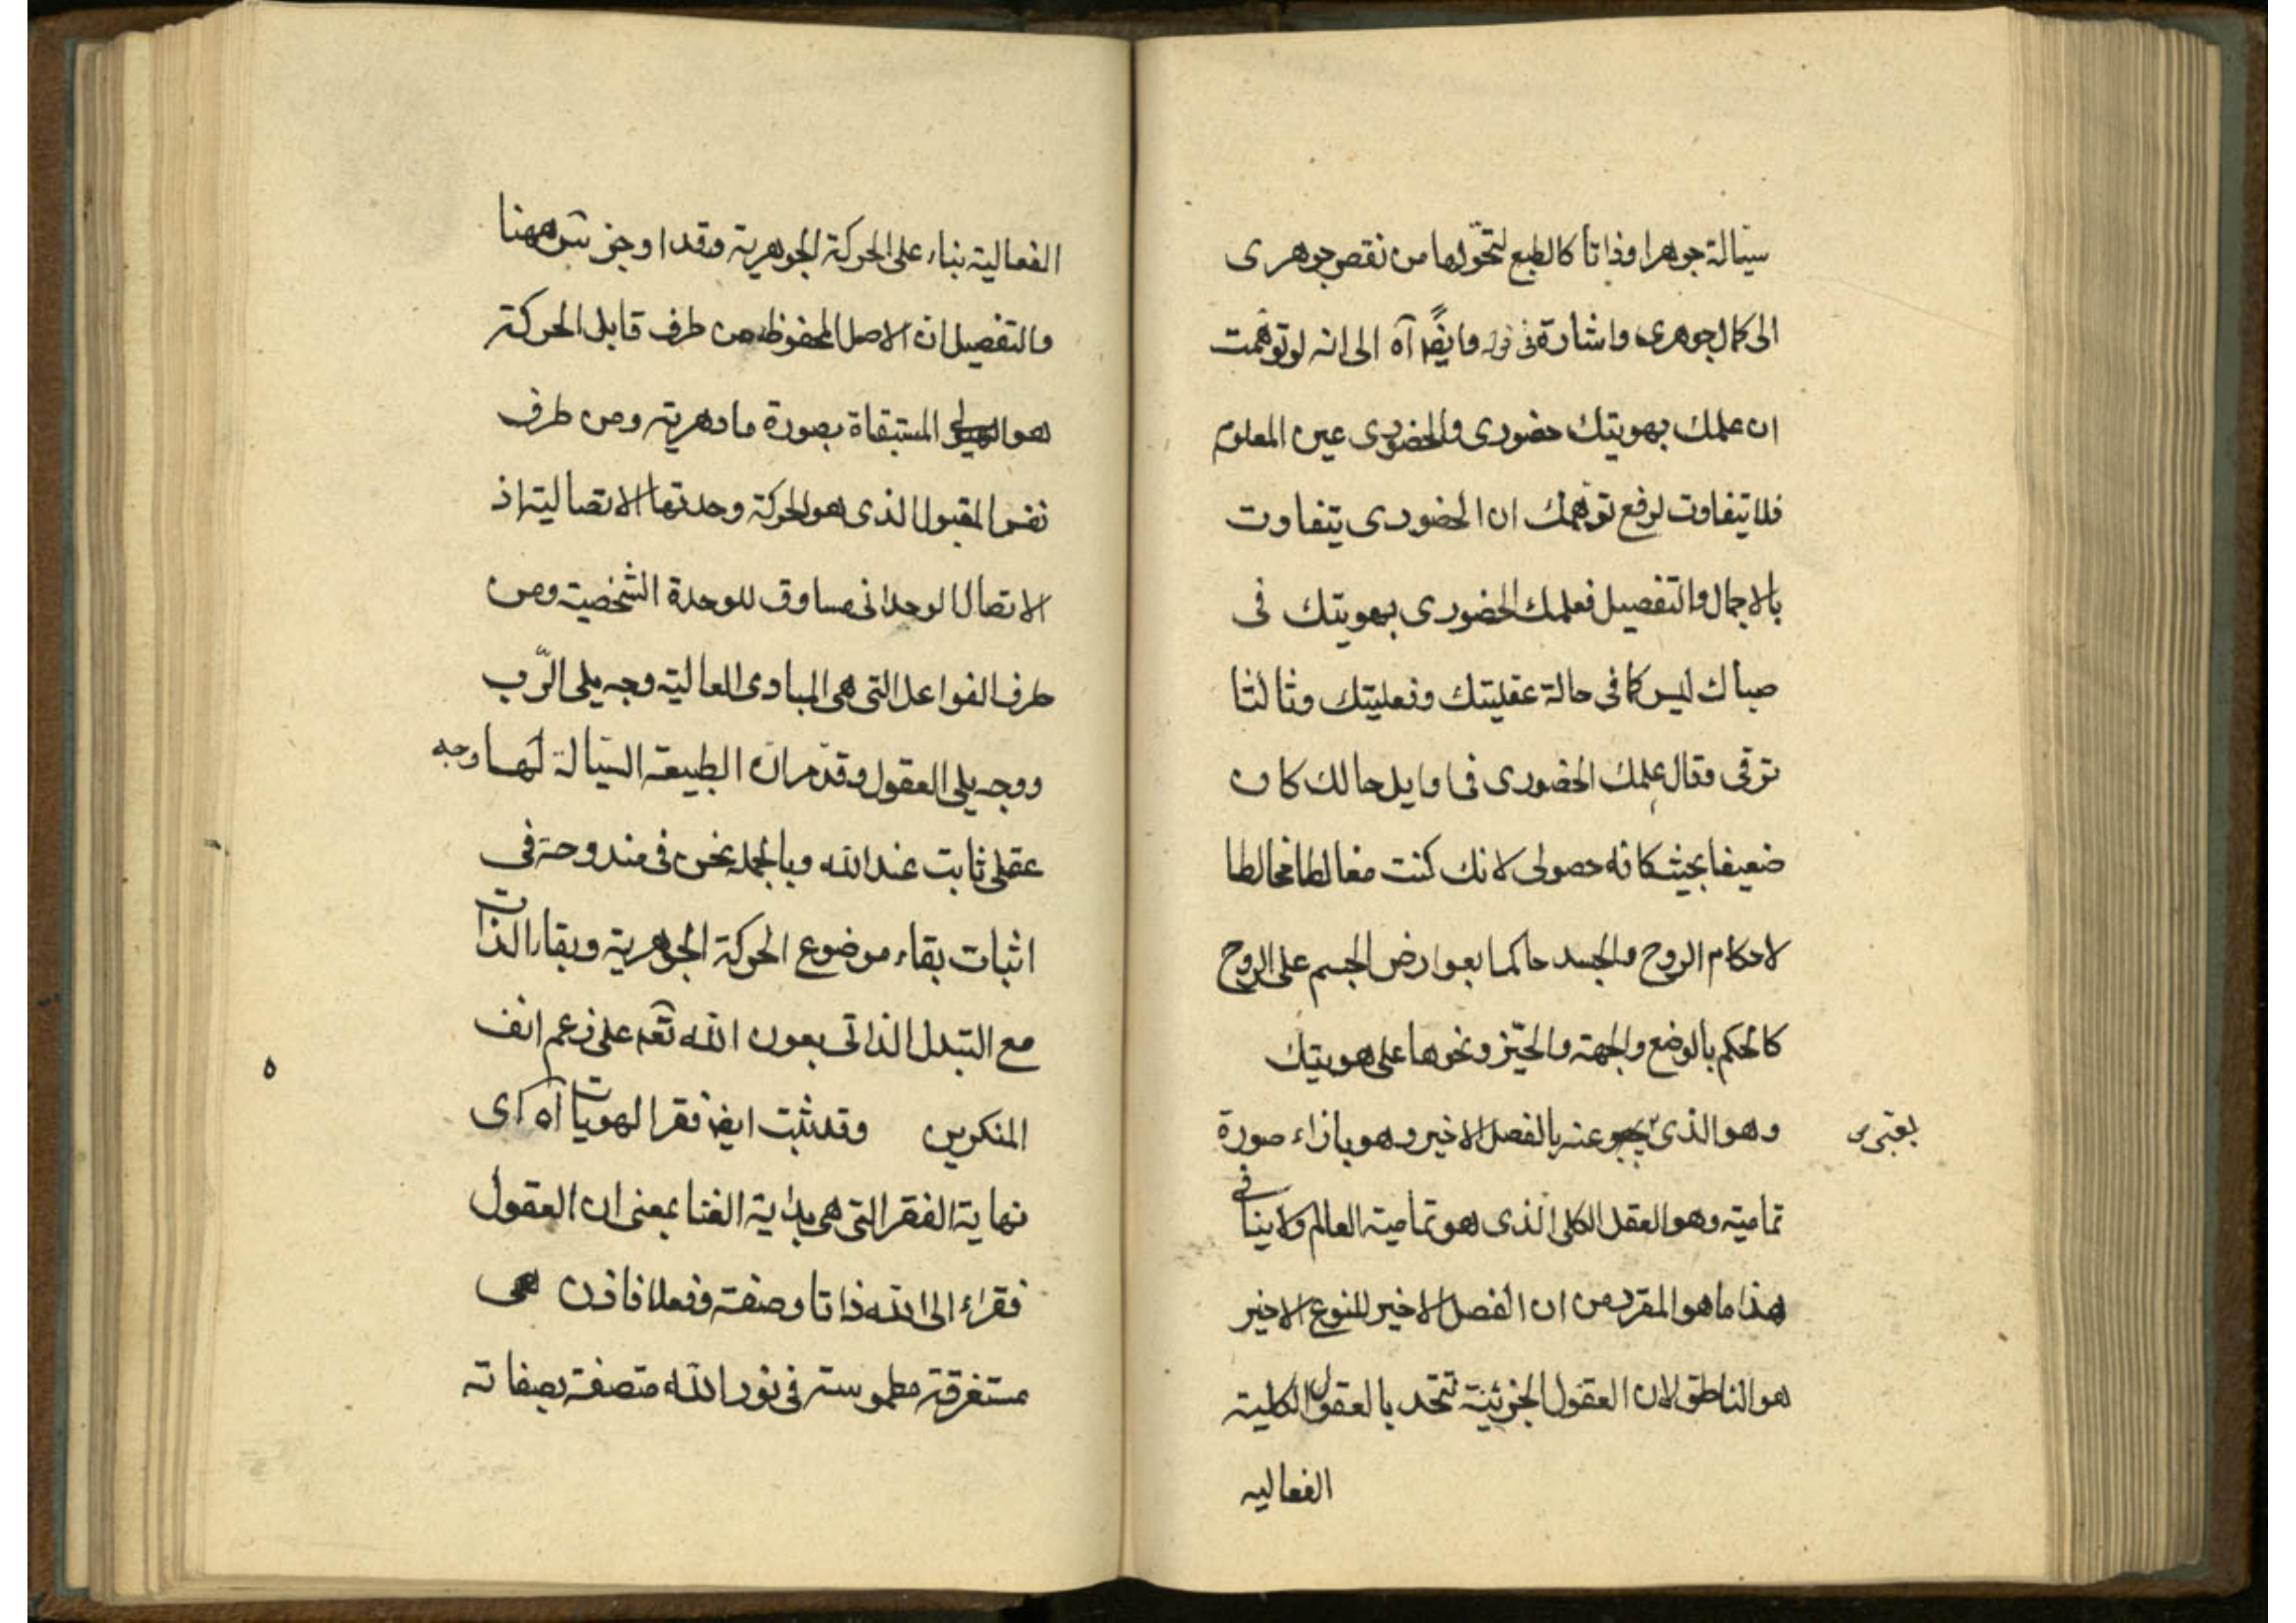 سيّالة جوهرا وذاتا كالطبع لتحوّلها من نقص جوهرى
الى كمال جوهرى واشارة فى قوله وايضًا آه الى انه لو توهّمت
ان علمك بهويتك حضورى والحضورى عين المعلوم
فلا يتفاوت لرفع توهمك ان الحضورى يتفاوت
بالاجمال والتفصيل فعلمك الحضورى بهويتك فى
صباك ليس كما فى حالة عقليتك وفعليتك وثالثا
ترقى وقال علمك الحضورى فى اوايل حالك كان
ضعيفا بحيث كانه حصولى لانك كنت مغالطا مخالطا
لاحكام الروح والجسد حاكما بعوارض الجسم على الروح
كالحكم بالوضع والجهة والحيّز ونحوها على هويتك
وهو الذى عنه بالفصل الاخير وهو بازاء صورة
تماميته وهو العقل الكلى الذى هو تمامية العالم ولا ينافى
هذا ما هو المقرر من ان الفصل الاخير للنوع الاخير
هو الناطق لان العقول الجزئية تتحد بالعقول الكلية
الفعاليه
الفعالية بناء على الحركة الجوهرية وقد اوجز ههنا
والتفصيل ان الاصل المحفوظ من طرف قابل الحركة
هو الهيولى المستبقاة بصورة ما دهرية ومن طرف
نفس المقبول الذى هو الحركة وحدتها الاتصالية اذ
الاتصال الوحدانى مساوق للوحدة الشخصية ومن
طرف الفواعل التى هى المبادى العالية وجه يلى الرّب
ووجه يلى العقول وقد مر ان الطبيعة السيّالة لها وجه
عقلى ثابت عند الله وبالجمله نحن فى مندوحة فى
اثبات بقاء موضوع الحركة الجوهرية وبقاء الذات
مع التبدل الذاتى بعون الله تعه على زعم انف
المنكرين وقد ثبت ايض فقر الهويات آه اى
نهاية الفقر التى هى بداية الغنا بمعنى ان العقول
فقراء الى الله ذاتا وصفة وفعلا فاذن هى
مستغرقة مطموسة فى نور الله متصفة بصفاته